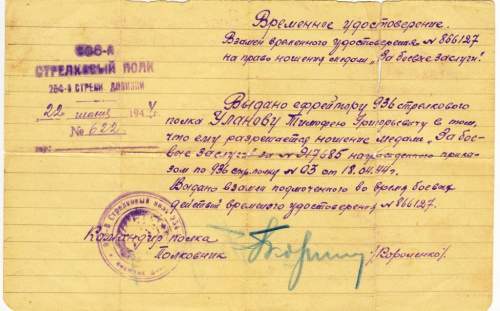 Временное удостоверение.
Взамен временного удостоверения № 866127
на право ношения медали „За боевые заслуги".
СТРЕЛКОВЫЙ ПОЛК
254-й СТРЕЛК ДИВИЗИИ
22 194
№ 622
Выдано ефрейтору 936 стрелкового
полка Уланову Тимофею Григорьевичу в том,
что ему разрешается ношение медали „За бое-
вые заслуги" за № 917685 награжденного прика-
зом по 936 стр. полку № 03 от 18.04.44 г.
Выдано взамен подмоченного во время боевых
действий временного удостоверения № 866127.
Командир полка
Полковник /Вороненко/